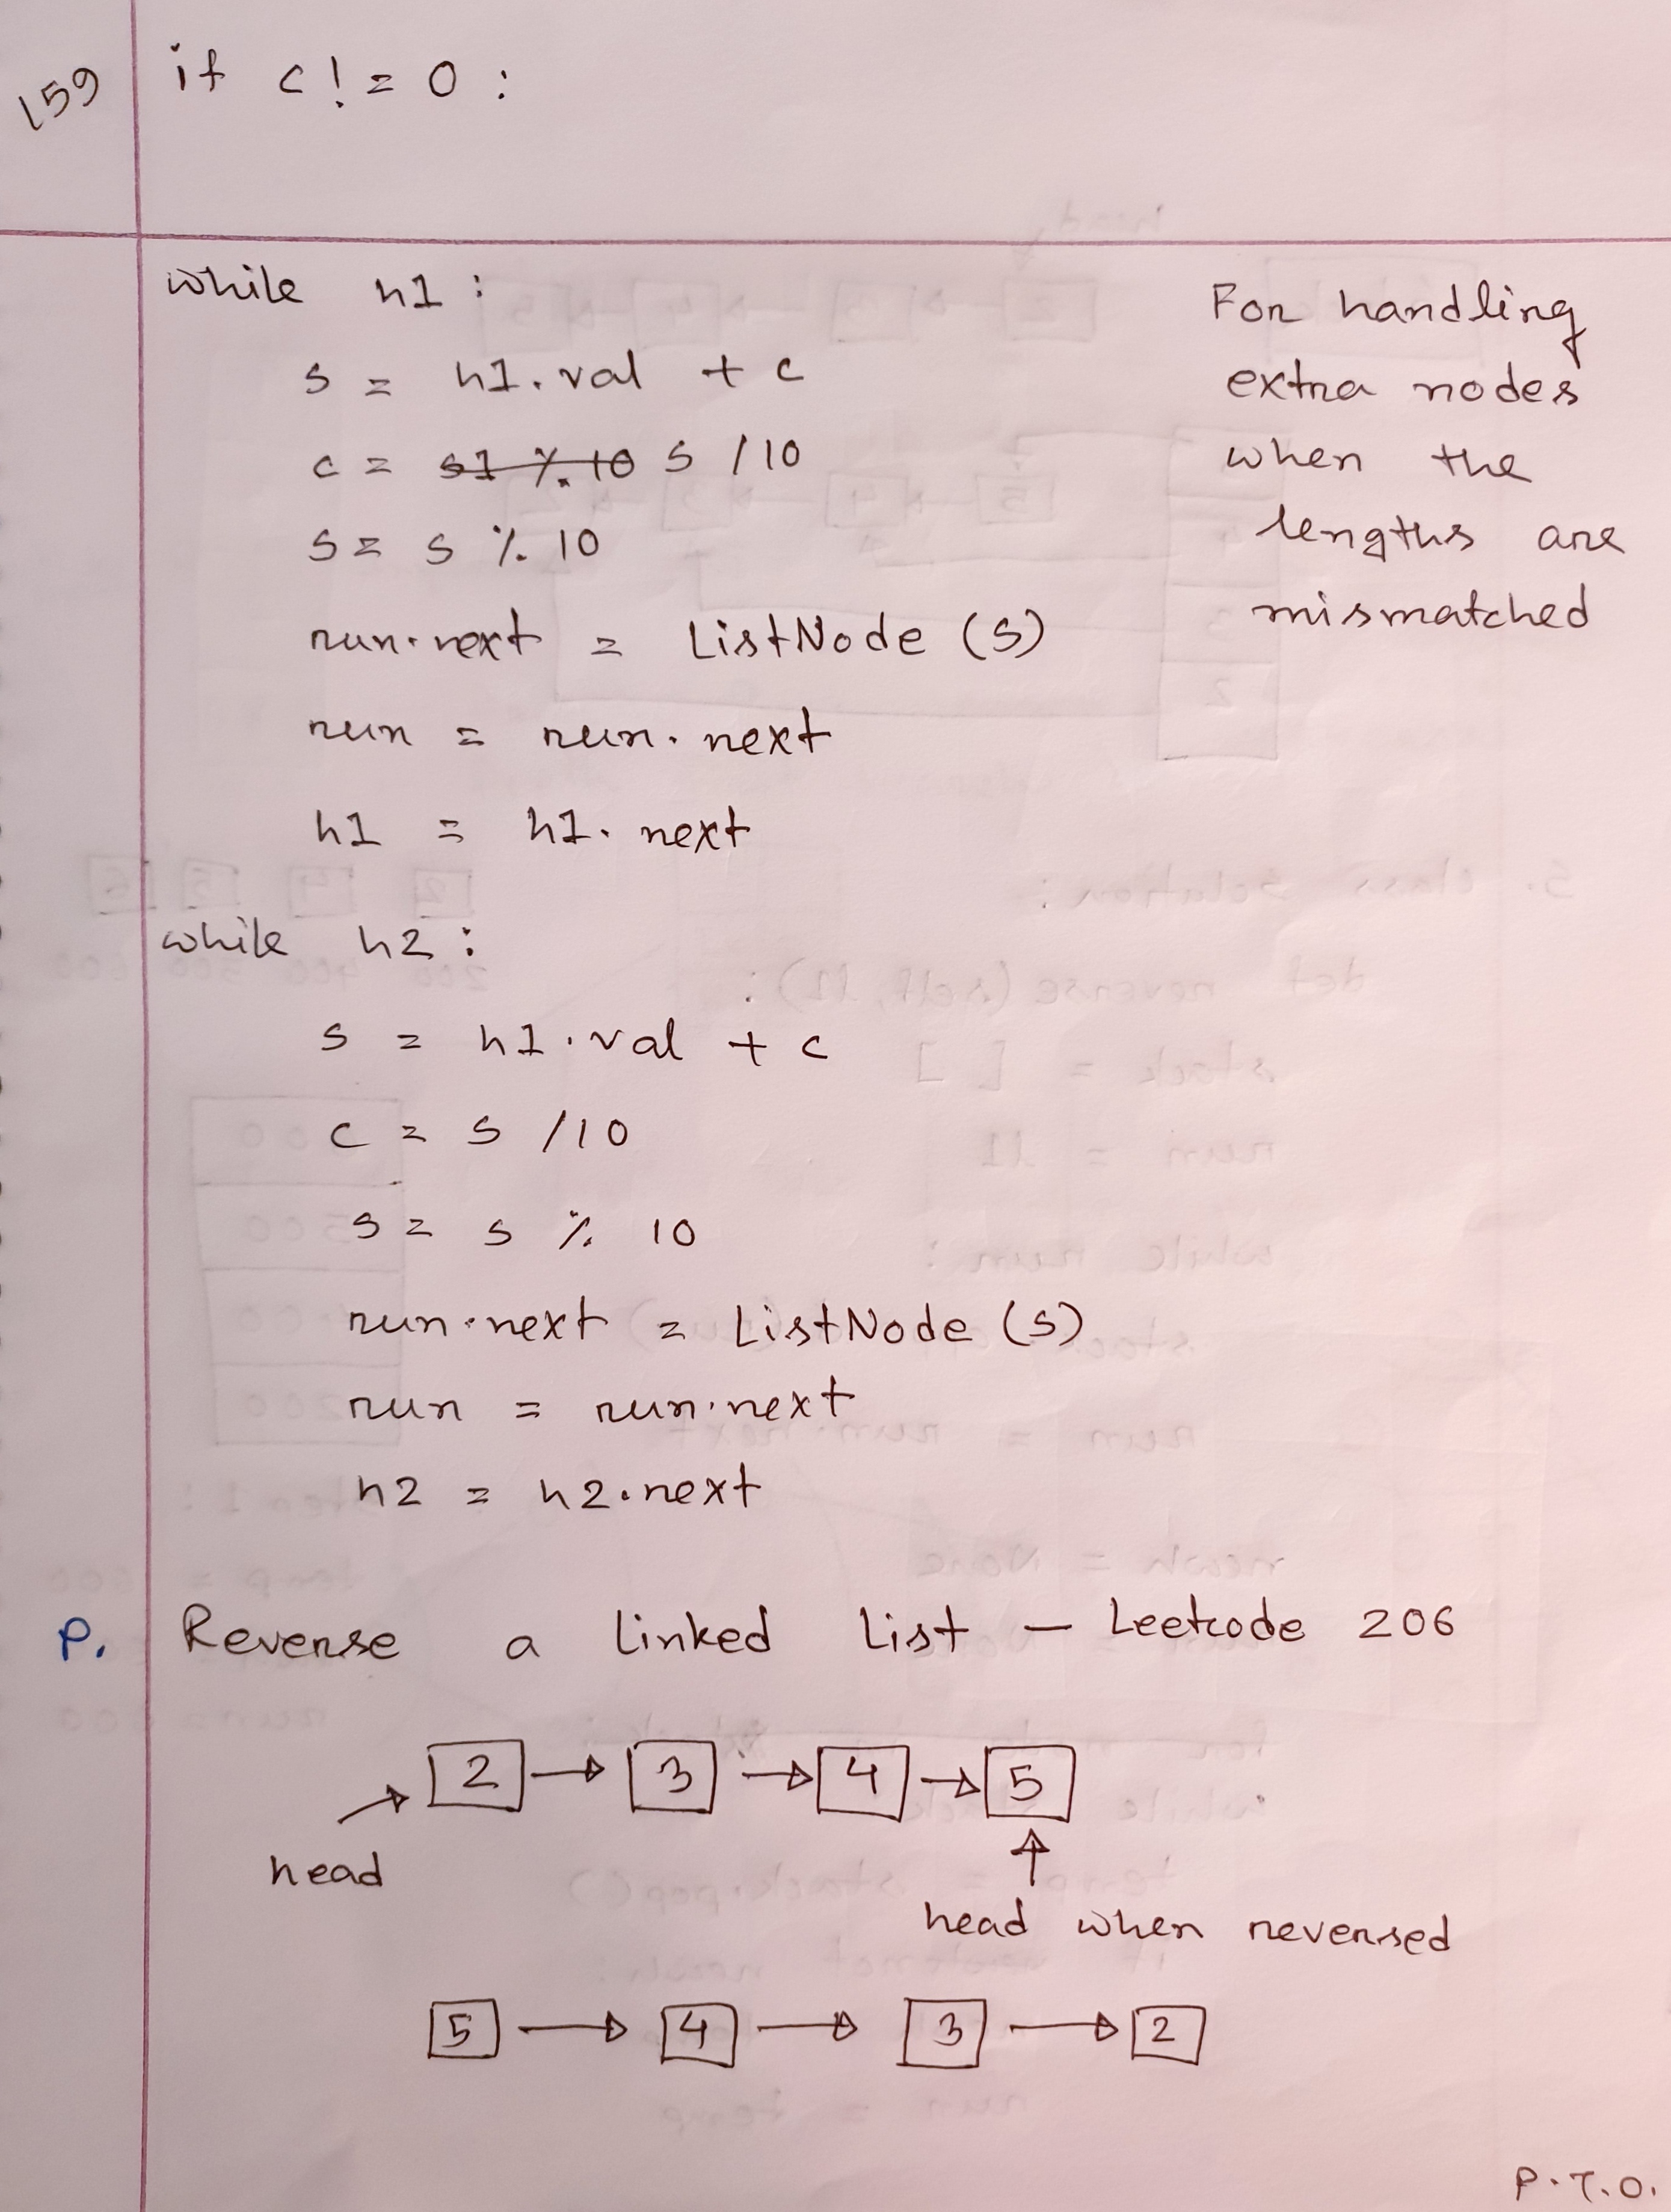 159
if c != 0 :
while h1 :
s = h1.val + c
c = s1 % 10 s /10
s = s % 10
run.next = ListNode (s)
run = run.next
h1 = h1.next
For handling
extra nodes
when the
lengths are
mismatched
while h2 :
s = h1.val + c
c = s /10
s = s % 10
run.next = ListNode (s)
run = run.next
h2 = h2.next
P. Reverse a linked list - Leetcode 206
2 3 4 5
head
head when reversed
5 4 3 2
P.T.O.